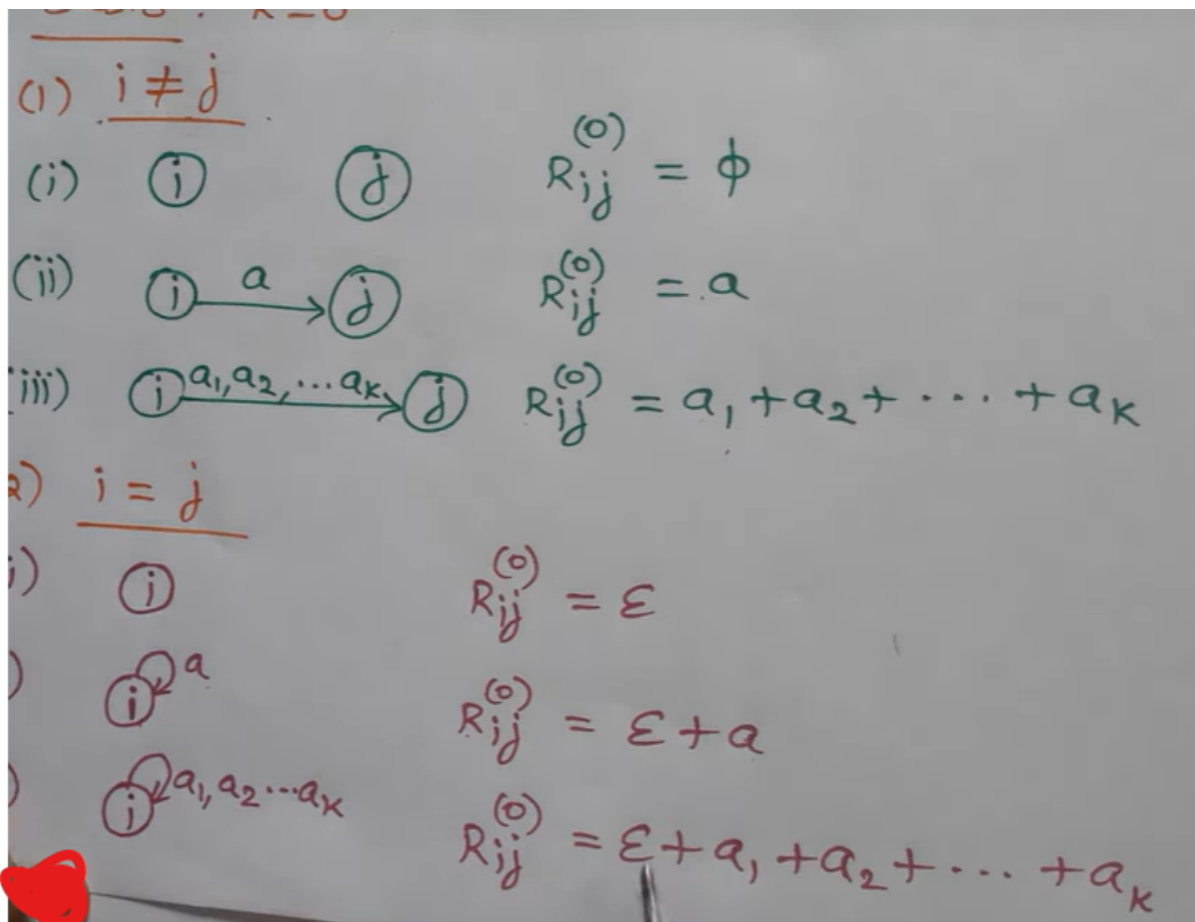 k=0
(1) i ≠ j
(i) i j R_ij^(0) = ϕ
(ii) i a j R_ij^(0) = a
iii) i a₁, a₂, ... aₖ j R_ij^(0) = a₁ + a₂ + .... + aₖ
2) i = j
i) i R_ij^(0) = ε
) i a R_ij^(0) = ε + a
) i a₁, a₂ ... aₖ R_ij^(0) = ε + a₁ + a₂ + .... + aₖ